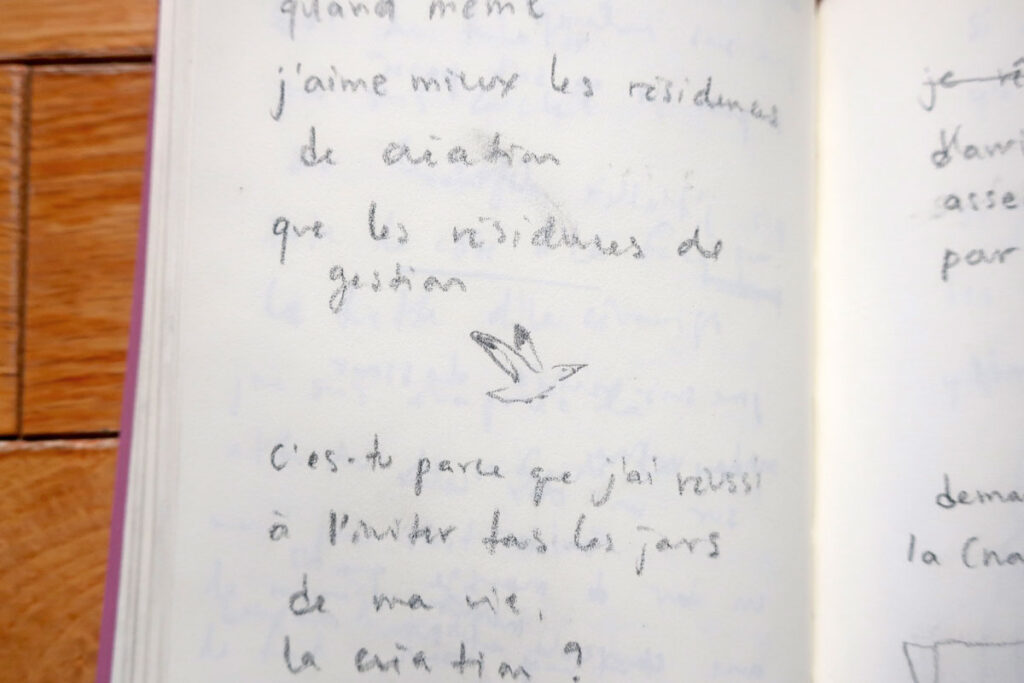 quand même
j'aime mieux les résidences
de création
que les résidences de
gestion
c'es-tu parce que j'ai réussi
à l'inviter tous les jours
de ma vie,
la création ?
je ré
d'avri
asse
par
dema
la Cna